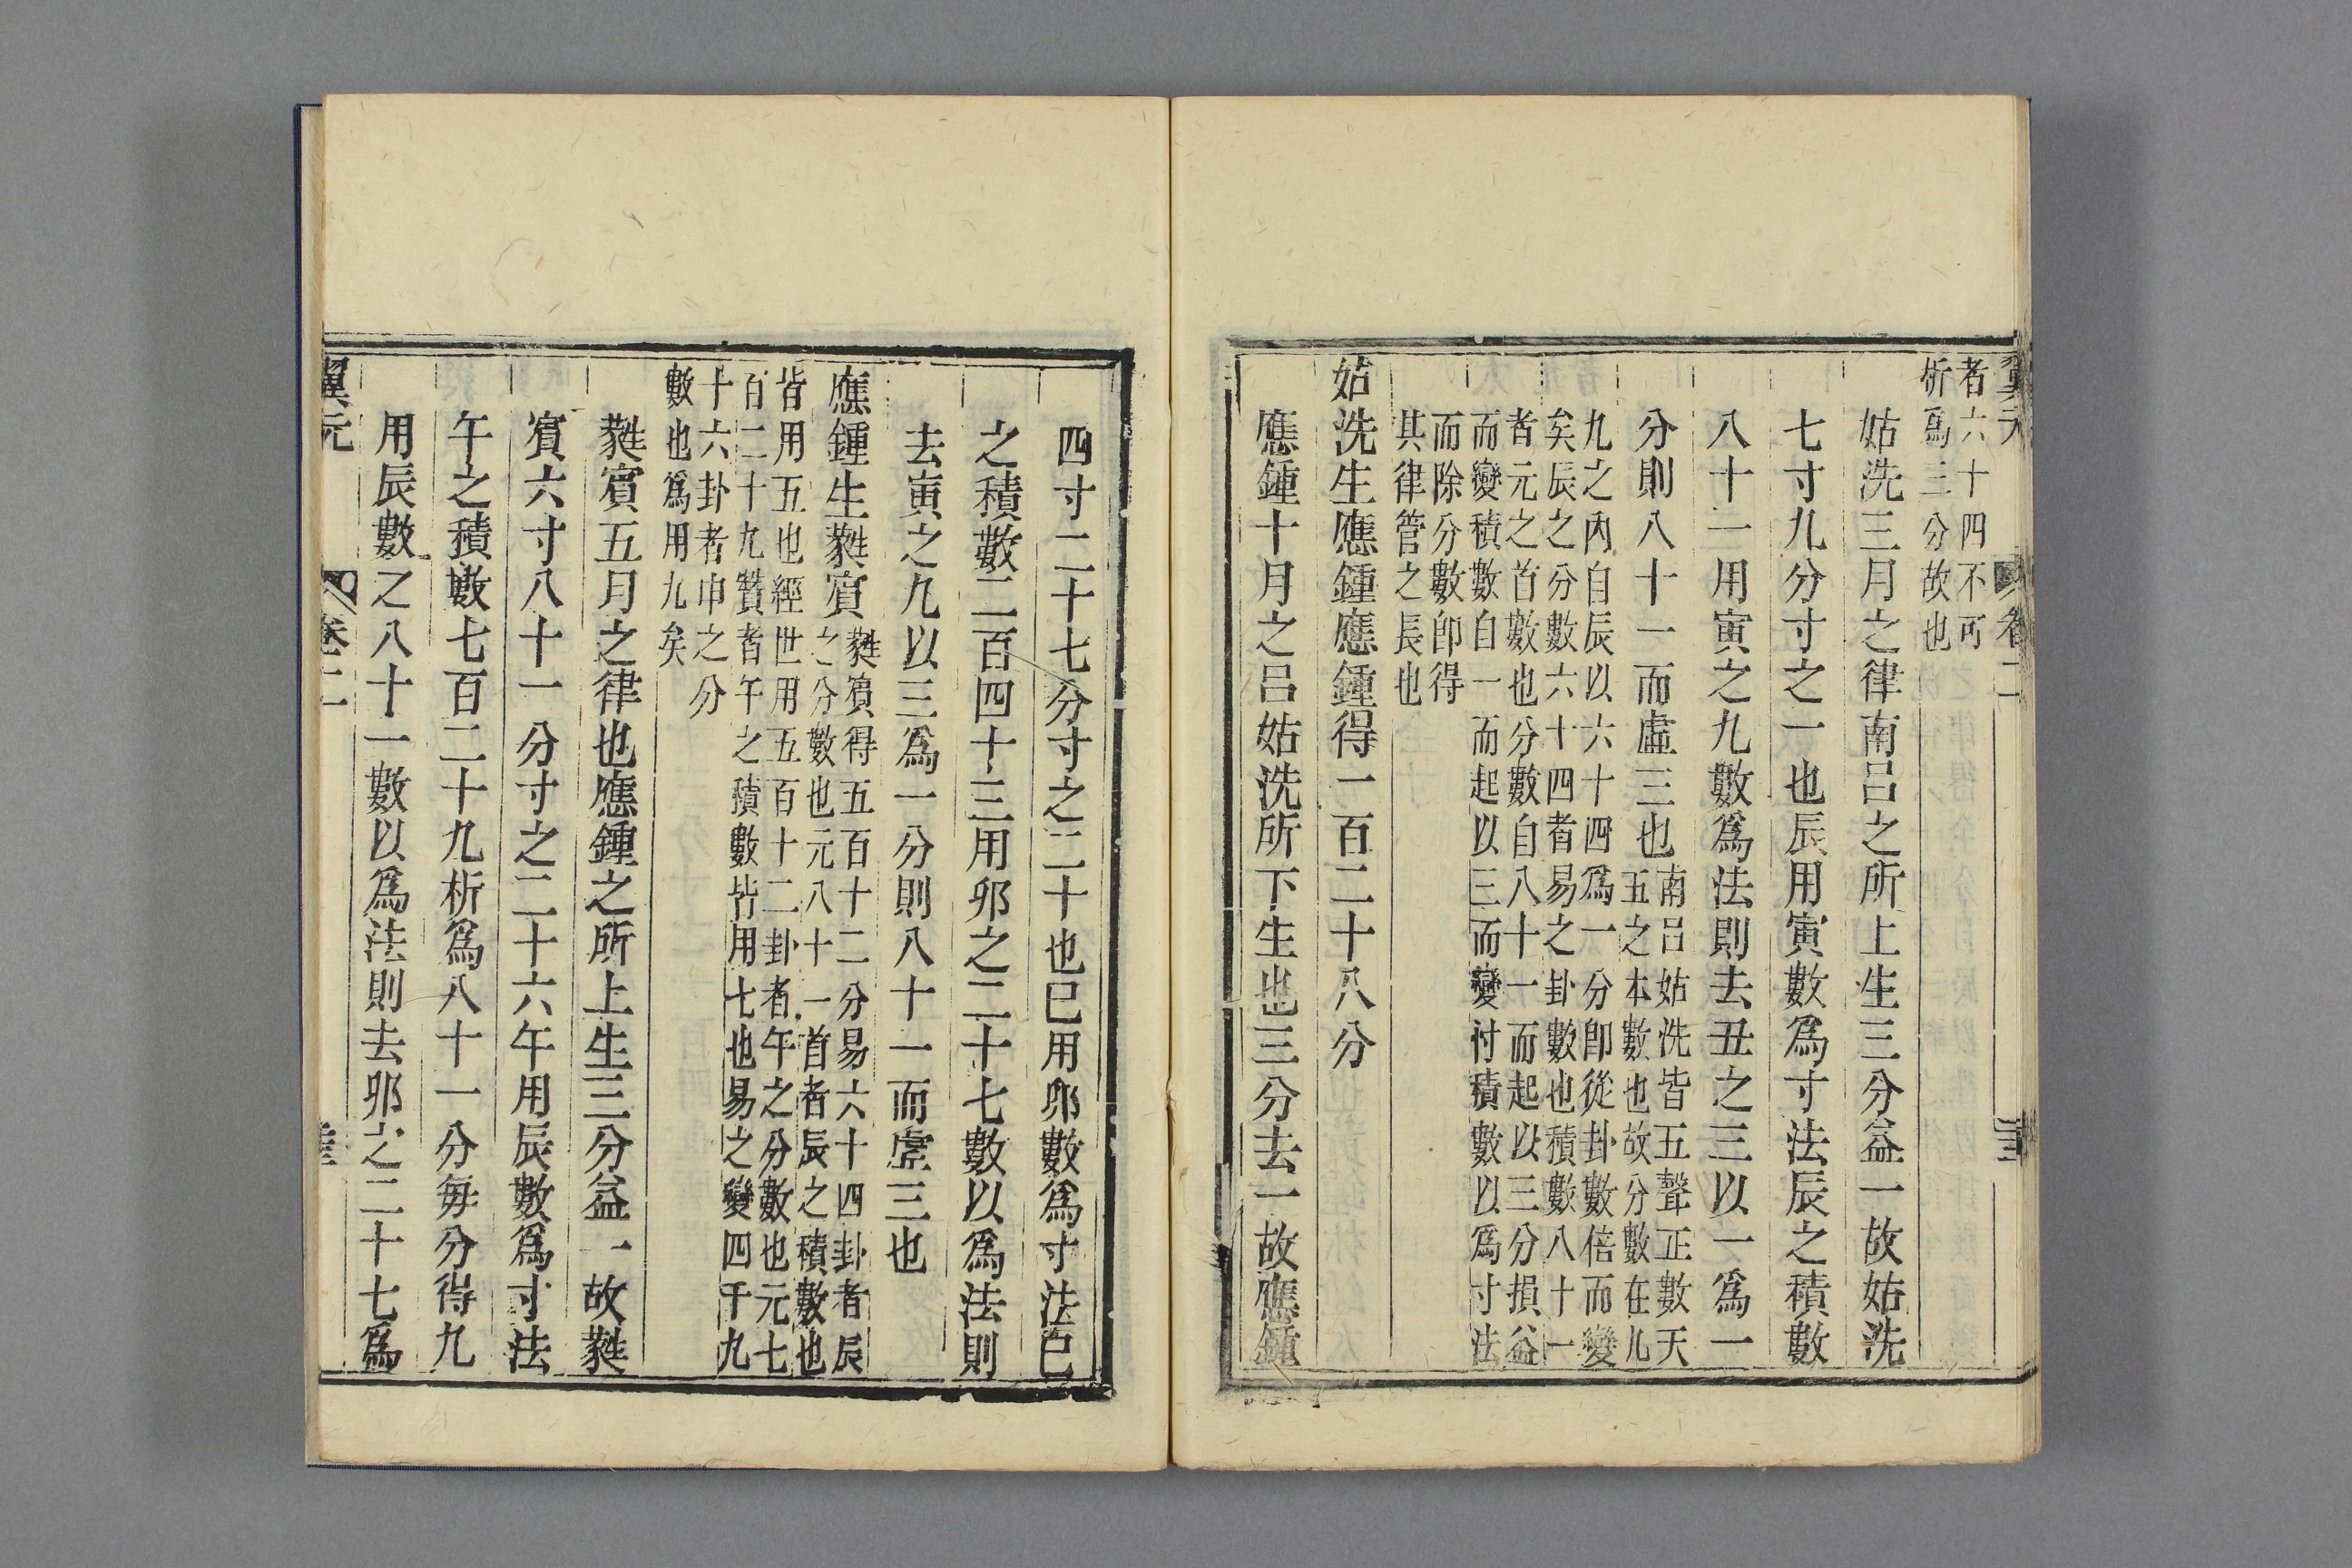 翼元
卷二
者六十四不可
析爲三分故也
姑洗三月之律南呂之所上生三分益一故姑洗
七寸九分寸之一也辰用寅數爲寸法辰之積數
八十一用寅之九數爲法則去丑之三以一爲一
分則八十一而虛三也
南呂姑洗皆五聲正數天
五之本數也故分數在九
九之內自辰以六十四爲一分卽從卦數倍而變
矣辰之分數六十四者易之卦數也積數八十一
者元之首數也分數自八十一而起以三分損益
而變積數自一而起以三而變忖積數以爲寸法
而除分數卽得
其律管之長也
姑洗生應鍾應鍾得一百二十八分
應鍾十月之呂姑洗所下生也三分去一故應鍾
四寸二十七分寸之二十也巳用卯數爲寸法巳
之積數二百四十三用卯之二十七數以爲法則
去寅之九以三爲一分則八十一而虛三也
應鍾生蕤賓
蕤賓得五百十二分易六十四卦者辰
之分數也元八十一首者辰之積數也
皆用五也經世用五百十二卦者午之分數也元七
百二十九贊者午之積數皆用七也易之變四千九
十六卦者申之分
數也爲用九矣
蕤賓五月之律也應鍾之所上生三分益一故蕤
賓六寸八十一分寸之二十六午用辰數爲寸法
午之積數七百二十九析爲八十一分每分得九
用辰數之八十一數以爲法則去卯之二十七爲
翼元
卷二